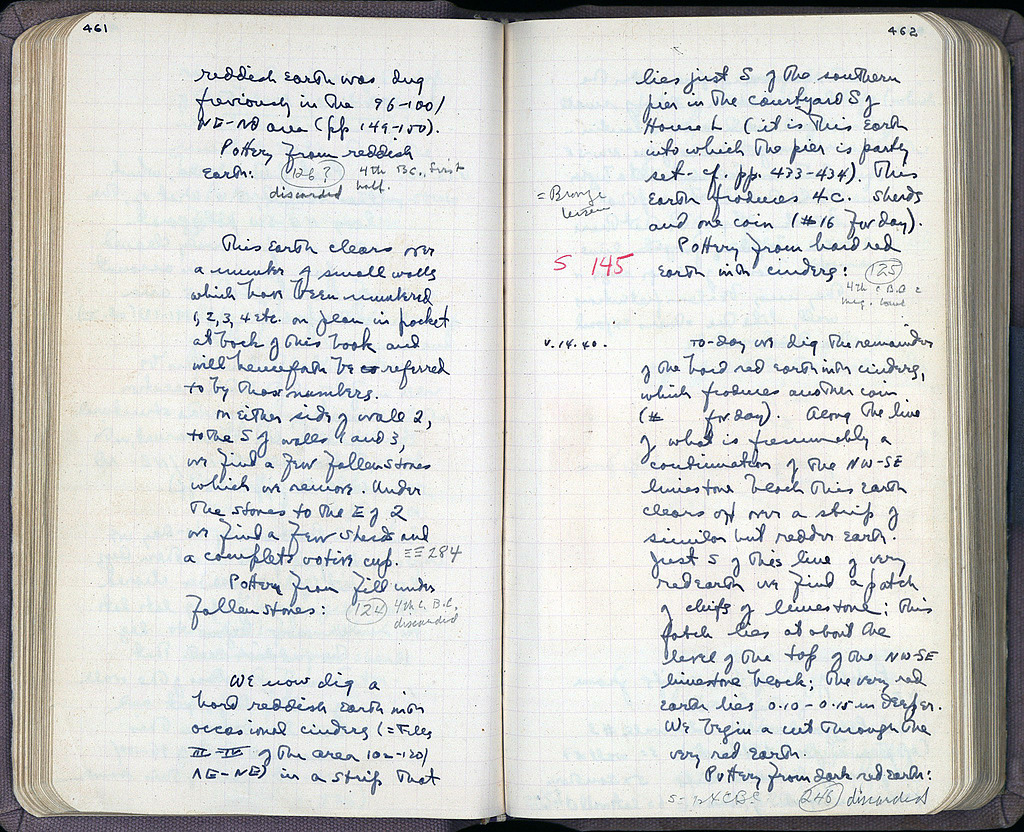 461
reddish earth was dug
previously in the 96-100/
NE-NΘ area (pp 149-150).
Pottery from reddish
earth: 126? 4th BC., first
half.
discarded
This earth clears over
a number of small walls
which have been numbered
1, 2, 3, 4 etc. on plan in pocket
at back of this book and
will henceforth be referred
to by those numbers.
On either side of wall 2,
to the S of walls 1 and 3,
we find a few fallen stones
which we remove. Under
the stones to the E of 2
we find a few sherds and
a complete votive cup. ΞΞ 284
Pottery from fill under
fallen stones: 4th c. B.C.
discarded
We now dig a
hard reddish earth with
occasional cinders (= Files
III-IV of the area 102-120/
ΛΕ-ΝΕ) in a strip that
462
lies just S of the southern
pier in the courtyard S of
House L (it is this earth
into which the pier is partly
set - cf. pp. 433-434). This
= Bronze
earth produces 4 c. sherds
and one coin (#16 for day).
Pottery from hard red
S 145
earth with cinders: 125
4th c B.C. &
V.14.40.
To-day we dig the remainder
of the hard red earth with cinders,
which produces another coin
(# for day). Along the line
of what is presumably a
continuation of the NW-SE
limestone block this earth
clears off over a strip of
similar but redder earth.
Just S of this line of very
red earth we find a patch
of chips of limestone: this
patch lies at about the
level of the top of the NW-SE
limestone block; the very red
earth lies 0.10-0.15 m deeper.
We begin a cut through the
very red earth.
Pottery from dark red earth:
246 discarded